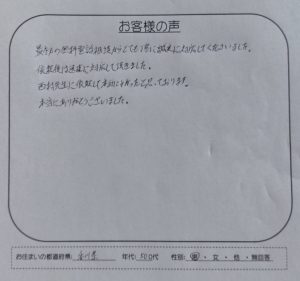 お客様の声
最初の無料電話相談からとても丁寧に誠実に対応してくださいました。
依頼後は迅速に対応して頂きました。
西村先生に依頼して本当によかったと思っております。
本当にありがとうございました。
お住まいの都道府県: 香川県 年代: 50代 性別: 男 ・ 女 ・ 他 ・ 無回答